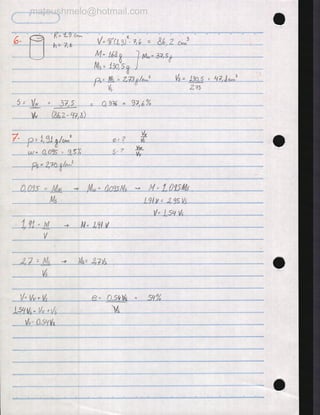 mateushmelo@hotmail.com
6- R= 1,9 cm
h= 7,6
V= π(1,9)². 7,6 = 86,2 cm³
M= 168 g } Mw= 37,5 g
Ms= 130,5 g
ρs= Ms/Vs = 2,73 g/cm³ Vs= 130,5/2,73 = 47,8 cm³
S= Vw/Vv = 37,5/(86,2-47,8) = 0,976 = 97,6%
7- ρ= 1,91 g/cm³ e= ? Vv/Vs
w= 0,095 = 9,5% S= ? Vw/Vv
ρs= 2,70 g/cm³
0,095 = Mw/Ms → Mw= 0,095Ms → M= 1,095Ms
1,91V = 2,95Vs
V= 1,54 Vs
1,91 = M/V → M= 1,91 V
2,7 = Ms/Vs → Ms= 2,7Vs
V= Vv + Vs e= 0,54Vs/Vs = 54%
1,54Vs= Vv + Vs
Vv= 0,54Vs